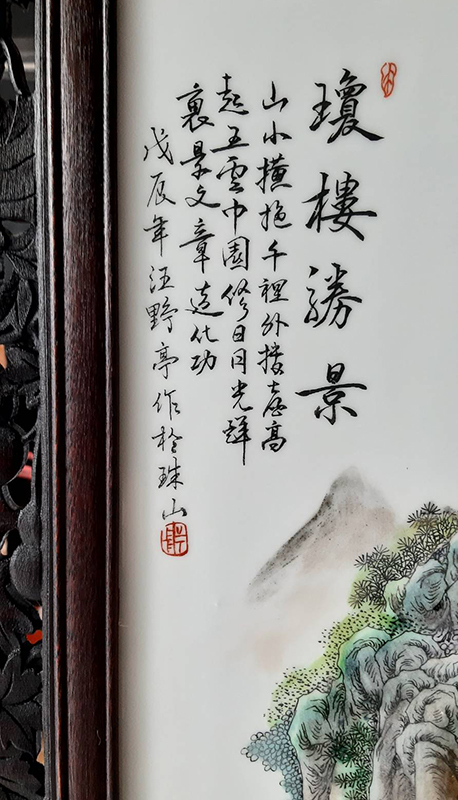 瓊樓勝景
山水橫拖千裡外樓臺高
起五雲中園修日月光輝
裏景文章造化功
戊辰年汪野亭作於珠山